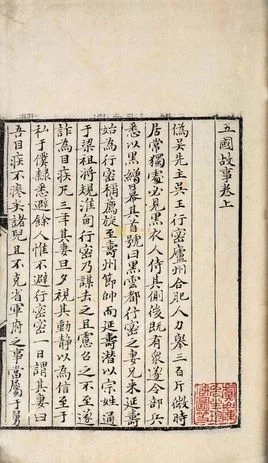 五國故事卷上
偽吳先主吳王行密廬州合肥人力舉三百斤微時
居常獨處必見黑衣人侍其側後既有衆遂令部兵
悉以黑繒幕其首號曰黑雲都行密之妻兄朱延壽
始為行密裨旋至壽州節帥而延壽潛以宗姓通
于梁祖將規淮甸行密乃謀去之且慮召之不至遂
詐為目疾凡三年其妻旦夕視其動静以為信至于
私于僕隷悉避餘惟不避行密一日謂其妻曰
吾目疾不瘳矣諸兒且不克省軍府之事當屬于舅